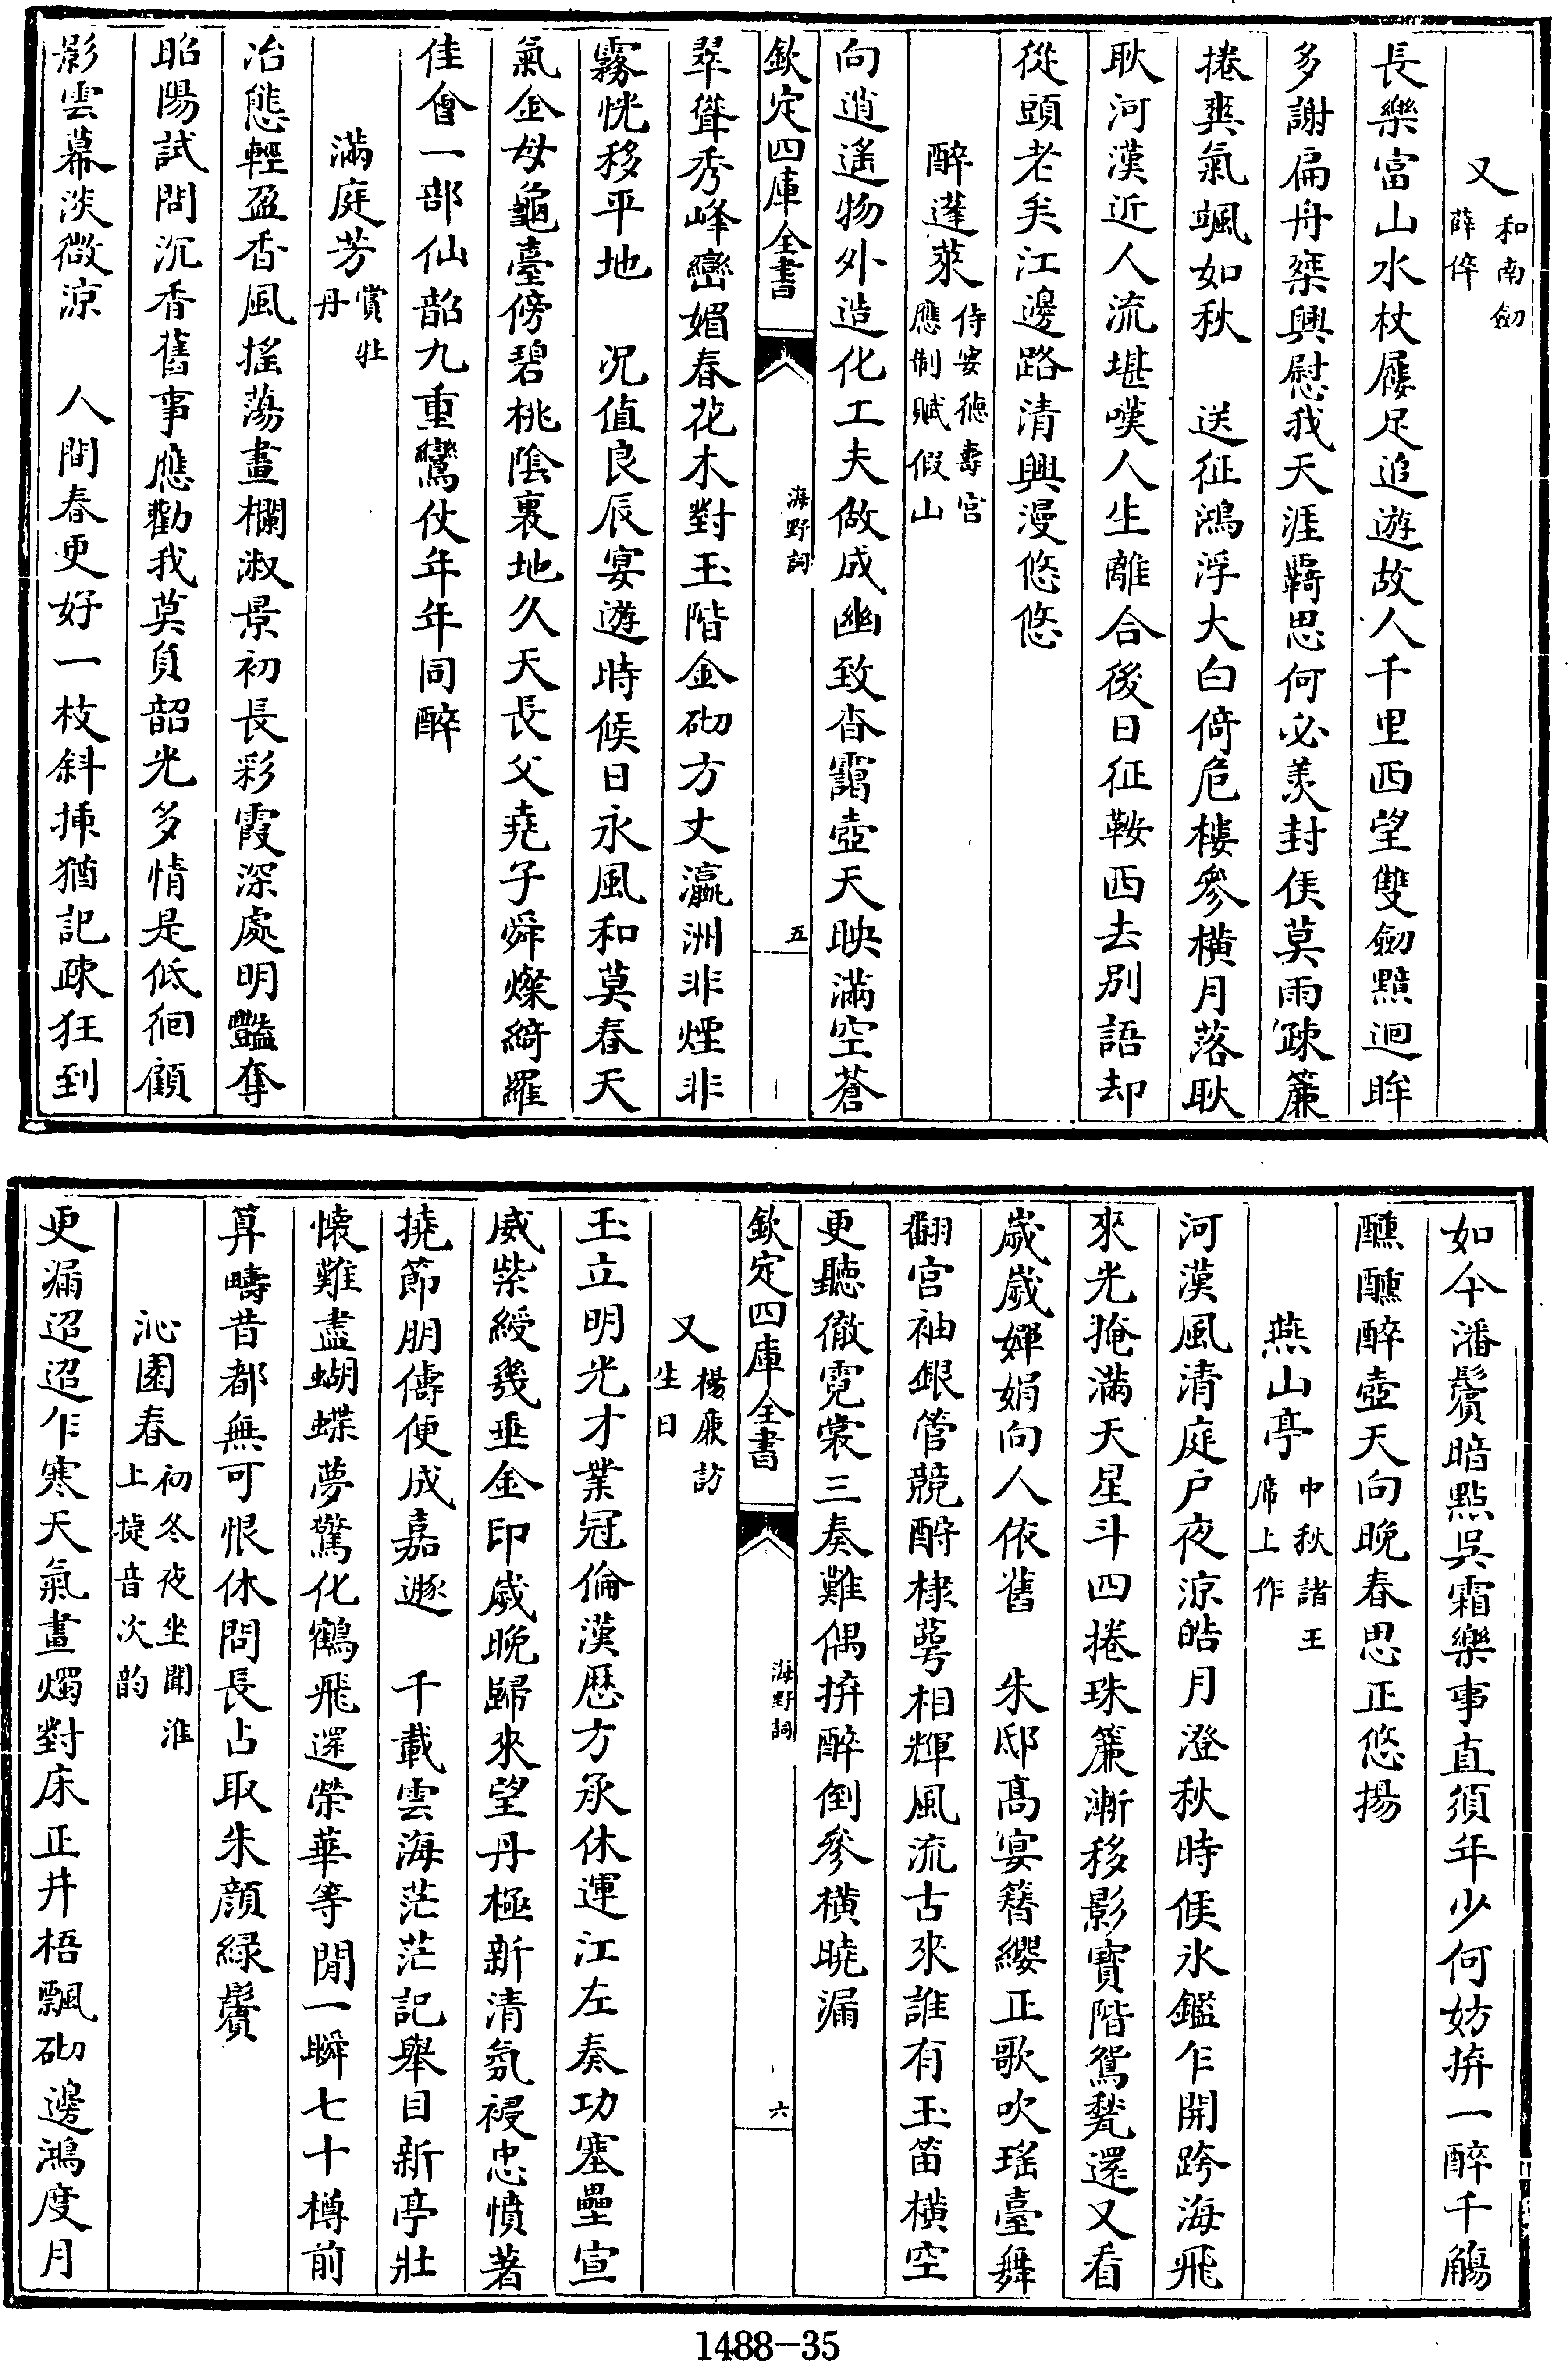 又和南劒薛倅
長樂富山水杖屨足追遊故人千里西望雙劒黯迴眸
多謝扁舟椉興慰我天涯羇思何必羨封侯莫雨疎簾
捲爽氣颯如秋　送征鴻浮大白倚危樓參横月落耿
耿河漢近人流堪嘆人生離合後日征鞍西去别語却
從頭老矣江邊路清興漫悠悠
醉蓬萊侍宴德壽宫應制賦假山
向逍遥物外造化工夫做成幽致杳靄壺天映滿空蒼
欽定四庫全書　海野詞　五
翠聳秀峰巒媚春花木對玉階金砌方丈瀛洲非煙非
霧恍移平地　况值良辰宴遊時候日永風和莫春天
氣金母龜臺傍碧桃陰裏地久天長父堯子舜燦綺羅
佳會一部仙韶九重鸞仗年年同醉
滿庭芳賞牡丹
冶態輕盈香風摇蕩畫欄淑景初長彩霞深處明豔奪
昭陽試問沉香舊事應勸我莫負韶光多情是低徊顧
影雲幕淡微涼　人間春更好一枝斜挿猶記疎狂到
如今潘鬢暗點吳霜樂事直須年少何妨拚一醉千觴
醺醺醉壺天向晚春思正悠揚
燕山亭中秋諸王席上作
河漢風清庭户夜涼皓月澄秋時候氷鑑乍開跨海飛
來光掩滿天星斗四捲珠簾漸移影寳階鴛甃還又看
歲歲嬋娟向人依舊　朱邸髙宴簪纓正歌吹瑤臺舞
翻宫袖銀管競酧棣萼相輝風流古來誰有玉笛横空
更聽徹霓裳三奏難偶拚醉倒參横曉漏
欽定四庫全書　海野詞　六
又楊廉訪生日
玉立明光才業冠倫漢歴方承休運江左奏功塞壘宣
威紫綬幾垂金印歲晩歸來望丹極新清氛祲忠憤著
撓節朋儔便成嘉遯　千載雲海茫茫記舉目新亭壯
懷難盡蝴蝶夢驚化鶴飛還榮華等閒一瞬七十樽前
算疇昔都無可恨休問長占取朱顔緑鬢
沁園春初冬夜坐聞淮上捷音次韵
更漏迢迢乍寒天氣畫燭對床正井梧飄砌邊鴻度月
1488-35